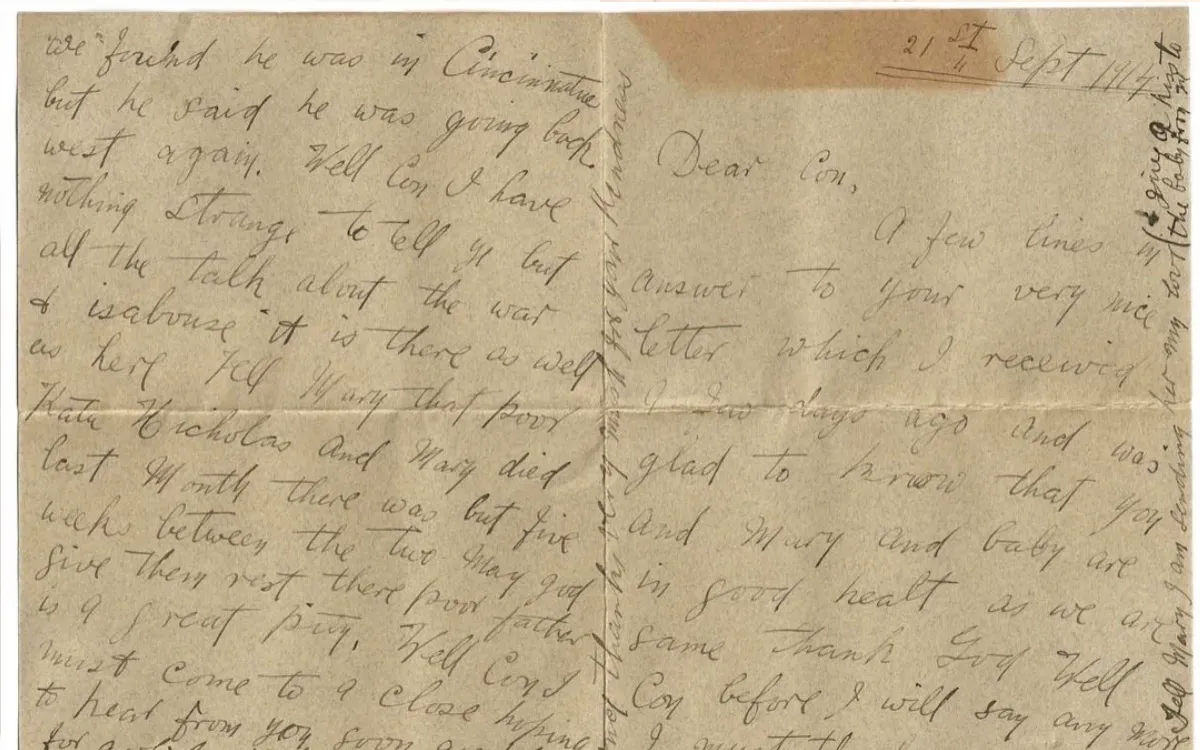 21st Sept 1914
Dear Con,
A few lines in
answer to your very nice
letter which I receivid
I few days ago and was
glad to know that you
and Mary and baby are
in good healt as we are
same thank God Well
Con before I will say any more
I must
we found he was in Cincinnatia
but he said he was going back
west again. Well Con I have
nothing strange to tell ye but
all the talk about the war
& isabouse it is there as well
as here Tell Mary that poor
Kate Nicholas and Mary died
last Month there was but five
weeks between the two May god
give them rest there poor father
is a great pity. Well Con I
must come to a close hoping
to hear from you soon
for
and thanks very much for your kindness
Tell Mary I am sending her my love
& give a kiss to
the baby from us